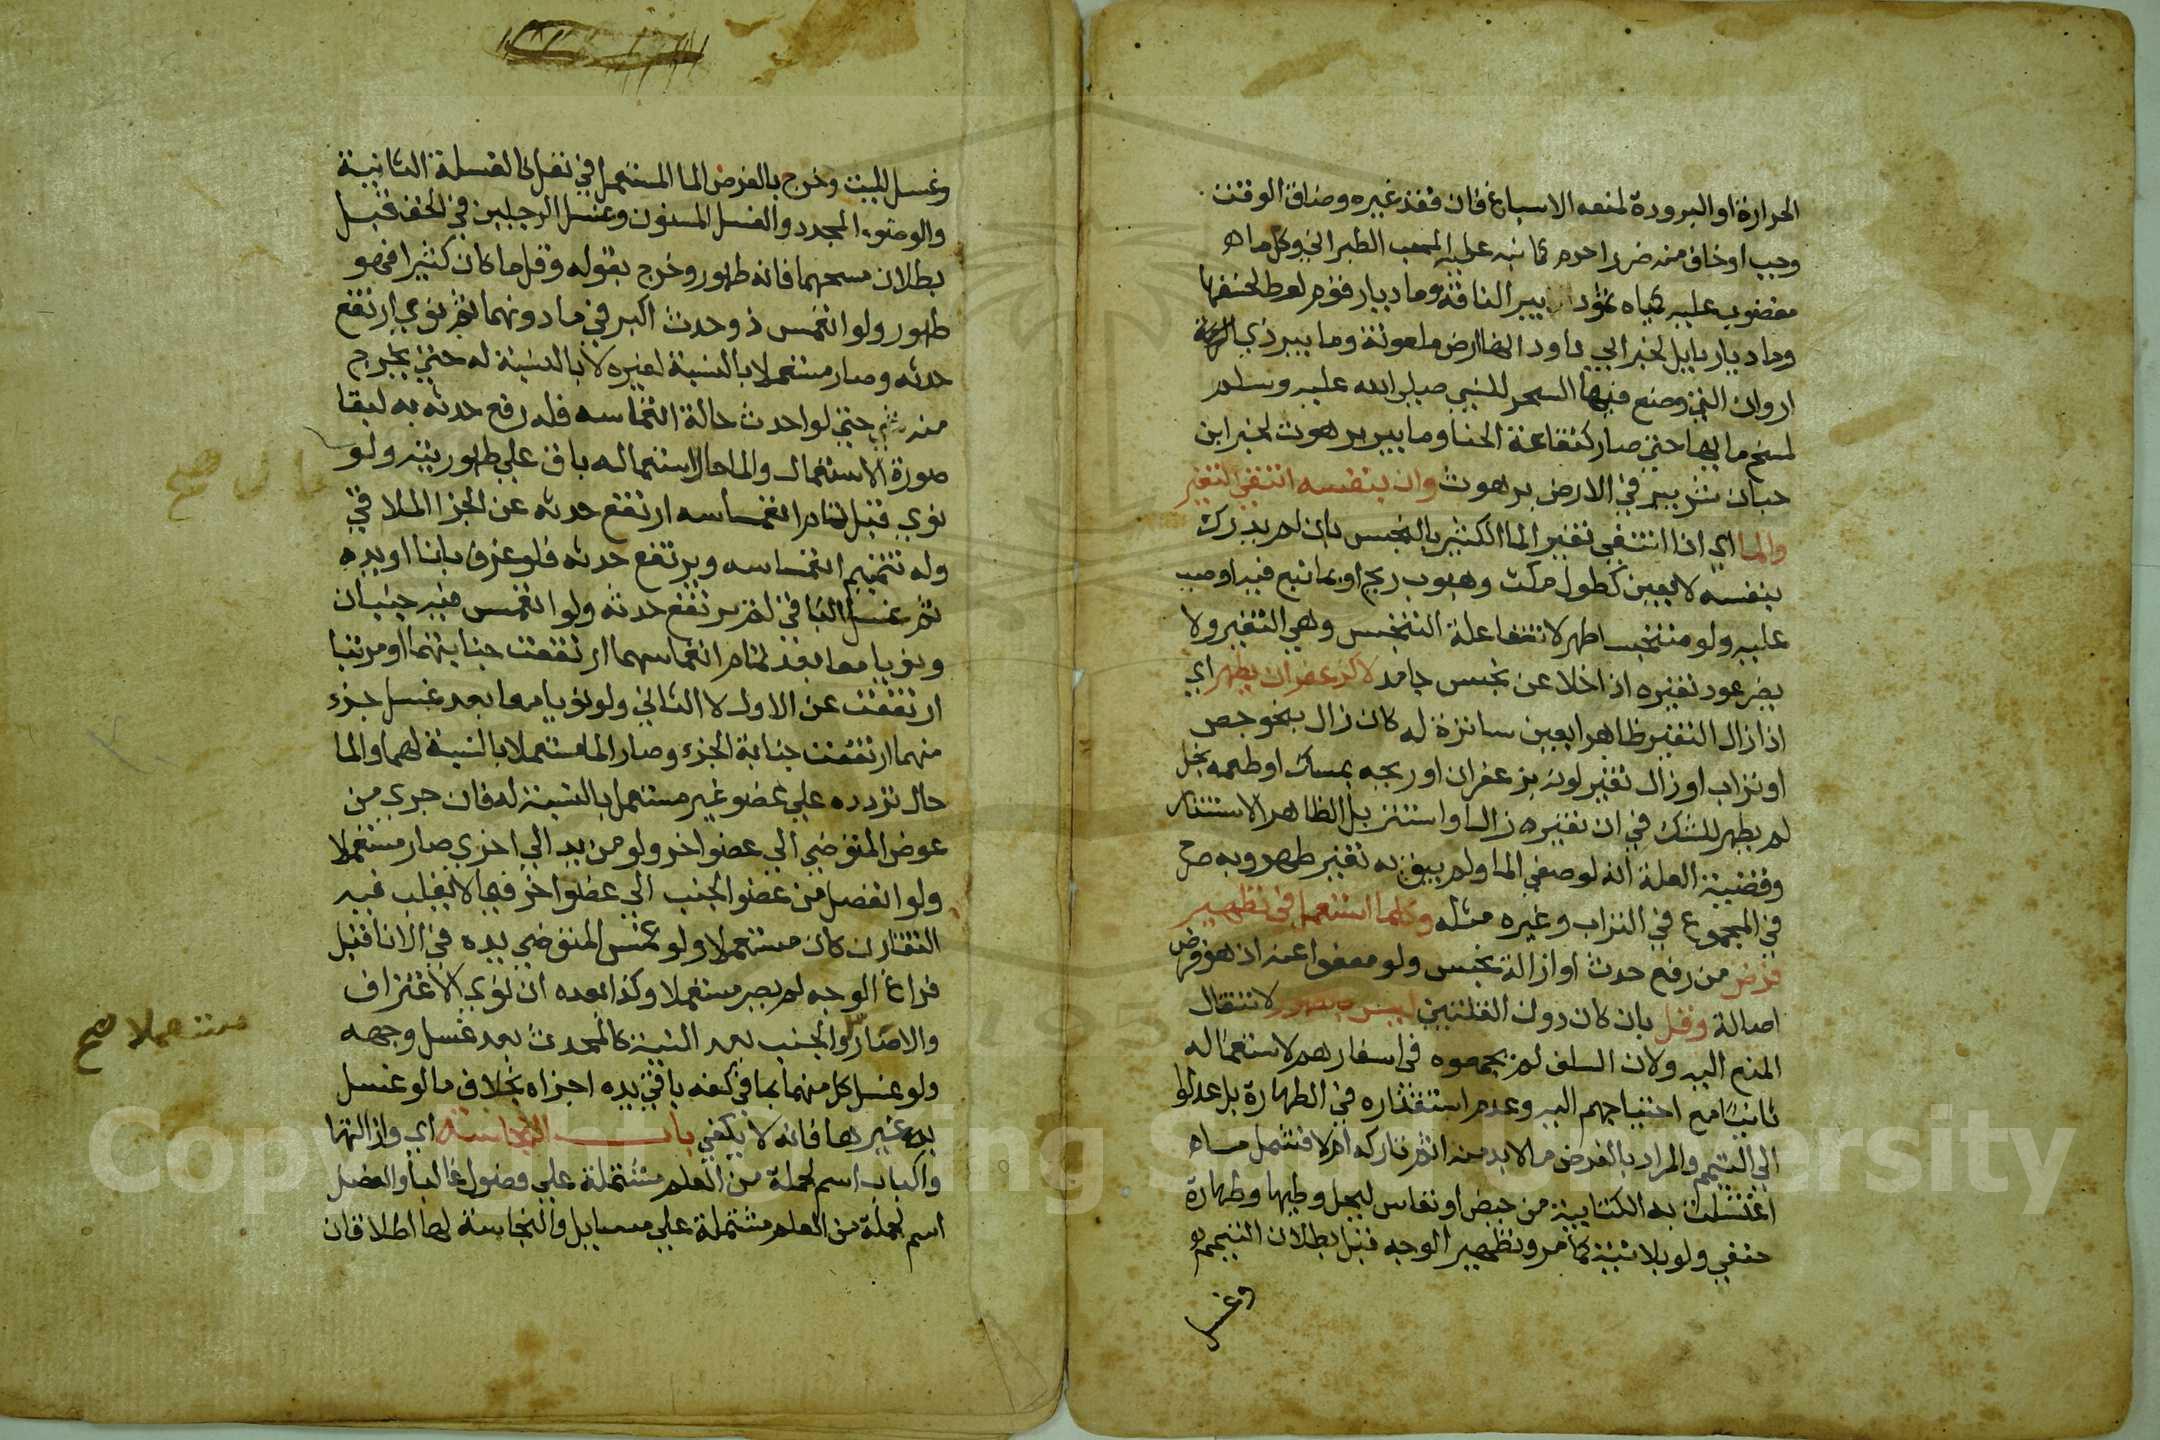 الحرارة او البرودة لمنعه الاسباغ فان فقد غيره وضاق الوقت
وجب او خاف منه ضررا حرم كما نبه عليه المحب الطبراني وكل ما هو
مغضوب عليه كمياه ثمود بير الناقة وما ديار قوم لوط لخسفها
وما ديار بابل لخبر ابي داود انها ارض ملعونة وما بير ذي
اروان التي وضع فيها السحر للنبي صلى الله عليه وسلم
لمسخ مايها حتى صار كنقاعة الحنا وما بير برهوت لخبر ابن
حبان شر بير في الارض برهوت وان بنفسه انتفى التغير
والما اي اذا انتفى تغير الما الكثير بالنجس بان لم يدرك
بنفسه لا بعين كطول مكث وهبوب ريح او بما نبع فيه او صب
عليه ولو متنجسا طهر لانتفا علة التنجس وهي التغير ولا
يضر عود تغيره اذا خلا عن نجس جامد لا كزعفران يطهر اي
اذا زال التغير ظاهرا بعين ساترة له كان زال بنحو جص
او تراب او زال تغير لونه بزعفران او ريحه بمسك او طعمه بخل
لم يطهر للشك في ان تغيره زال او استتر بل الظاهر الاستتار
وقضية العلة انه لو صفي الما ولم يبق به تغير طهر وبه صرح
في المجموع في التراب وغيره مثله وكلما استعمل في تطهير
فرض من رفع حدث او ازالة نجس ولو معفوا عنه اذ هو فرض
اصالة وقل بان كان دون القلتين ليس بطهور لانتقال
المنع اليه ولان السلف لم يجمعوه في اسفارهم لاستعماله
ثانيا مع احتياجهم اليه وعدم استقذاره في الطهارة بل عدلوا
الى التيمم والمراد بالفرض ما لابد منه اثم تاركه ام لا فشمل ماء
اغتسلت به الكتابية من حيض او نفاس ليحل وطيها وطهارة
حنفي ولو بلا نية كما مر وتطهير الوجه قبل بطلان التيمم
وغسل
وغسل الميت وخرج بالفرض الما المستعمل في نفل كالغسلة الثانية
والوضوء المجدد والغسل المسنون وغسل الرجلين في الخف قبل
بطلان مسحهما فانه طهور وخرج بقوله وقل ما كان كثيرا فهو
طهور ولو انغمس ذو حدث اكبر في ما دونهما ثم نوى ارتفع
حدثه وصار مستعملا بالنسبة لغيره لا بالنسبة له حتى يخرج
منه حتى لو احدث حالة انغماسه فله رفع حدثه به لبقا
صورة الاستعمال والما حال استعماله باق على طهوريته ولو
نوى قبل تمام انغماسه ارتفع حدثه عن الجزا الملاقي
وله تتميم انغماسه ويرتفع حدثه فلو غرف بانا او بيده
ثم غسل الباقي لم يرتفع حدثه ولو انغمس فيه جنبان
ونويا معا بعد تمام انغماسهما ارتفعت جنابتهما او مرتبا
ارتفعت عن الاول لا الثاني ولو نويا معا بعد غسل جزء
منهما ارتفعت جنابة الجزء وصار الما مستعملا بالنسبة لهما والما
حال تردده على عضو غير مستعمل بالنسبة له فان جرى من
عوض المتوضي الى عضو اخر ولو من يد الى اخرى صار مستعملا
ولو انفصل من عضو الجنب الى عضو اخر فيما لا يغلب فيه
التقاذف كان مستعملا ولو غمس المتوضي يده في الانا قبل
فراغ الوجه لم يصر مستعملا وكذا بعده ان نوى الاغتراف
والا صار والجنب بعد النية كالمحدث بعد غسل وجهه
ولو غسل كل منهما بما في كفه باقي يده اجزاه بخلاف ما لو غسل
به غيرها فانه لا يكفي باب النجاسة اي وازالتها
والباب اسم لجملة من العلم مشتملة على فصول غالبا والفصل
اسم لجملة من العلم مشتملة على مسايل والنجاسة لها اطلاقان
صح
مستعملا صح
Copyright © King Saud University